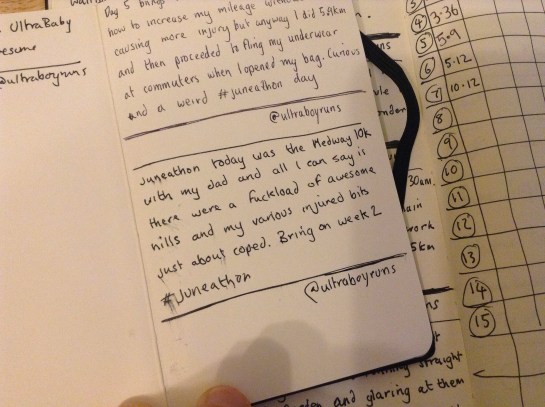 UltraBaby
@ultraboyruns
Day 5 brings
how to increase my mileage without
causing more injury but anyway I did 5.9km
and then proceeded to fling my underwear
at commuters when I opened my bag. Curious
and a weird #juneathon day
@ultraboyruns
Juneathon today was the Medway 10k
with my dad and all I can say is
there were a fuckload of awesome
hills and my various injured bits
just about coped. Bring on week 2
#Juneathon
@ultraboyruns
30am.
work
5km
straight
and glaring at them
④ 3.36
⑤ 5.9
⑥ 5.12
⑦ 10.12
⑧
⑨
⑩
⑪
⑫
⑬
⑭
⑮